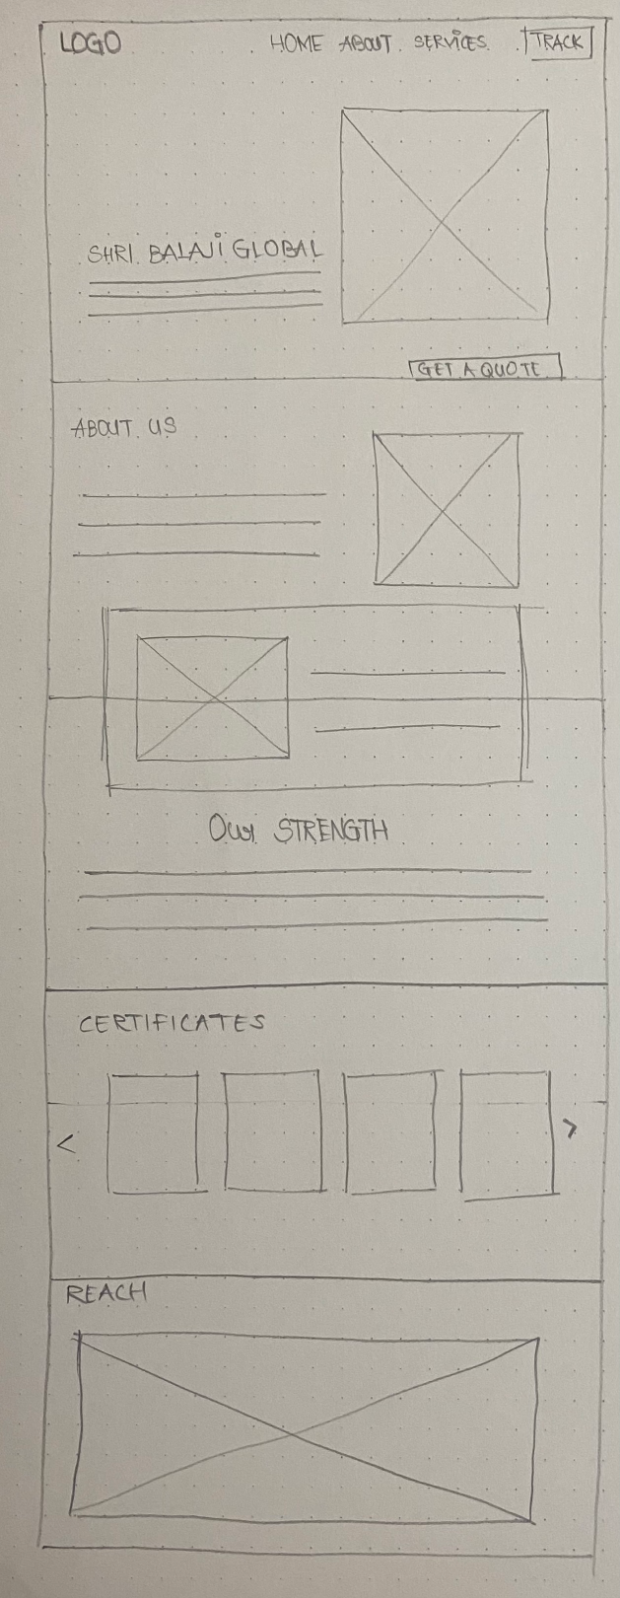 LOGO HOME ABOUT SERVICES TRACK
SHRI BALAJI GLOBAL
GET A QUOTE
ABOUT US
Our STRENGTH
CERTIFICATES
< >
REACH